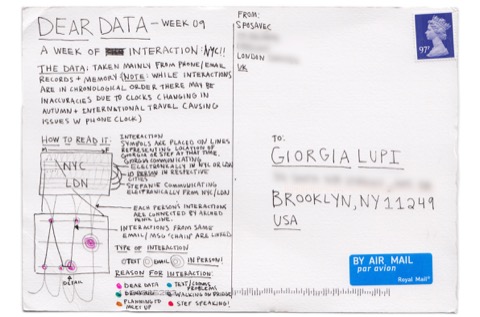 DEAR DATA - WEEK 09
A WEEK OF INTERACTION: NYC!!
THE DATA: TAKEN MAINLY FROM PHONE/EMAIL
RECORDS + MEMORY (NOTE: WHILE INTERACTIONS
ARE IN CHRONOLOGICAL ORDER THERE MAY BE
INACCURACIES DUE TO CLOCKS CHANGING IN
AUTUMN + INTERNATIONAL TRAVEL CAUSING
ISSUES W PHONE CLOCK)
HOW TO READ IT:
INTERACTION
SYMBOLS ARE PLACED ON LINES
REPRESENTING LOCATION OF
GIORGIA OR STEF AT THAT TIME.
GIORGIA COMMUNICATING
ELECTRONICALLY IN NYC OR LDN
IN PERSON IN RESPECTIVE
CITIES
STEFANIE COMMUNICATING
ELECTRONICALLY FROM NYC/LDN
NYC
LDN
EACH PERSON'S INTERACTIONS
ARE CONNECTED BY
PENCIL LINE.
INTERACTIONS FROM SAME
EMAIL/MSG 'CHAIN' ARE LINKED
DETAIL
TYPE OF INTERACTION
TEXT EMAIL IN PERSON!
REASON FOR INTERACTION:
DEAR DATA
TEXT/COMMS PROBLEMS
DRINKING
WALKING ON BRIDGE
PLANNING TO MEET UP
STEF SPEAKING!
FROM:
SPOSAVEC
LONDON
UK
97P
TO:
GIORGIA LUPI
BROOKLYN, NY 11249
USA
BY AIR MAIL
par avion
Royal Mail